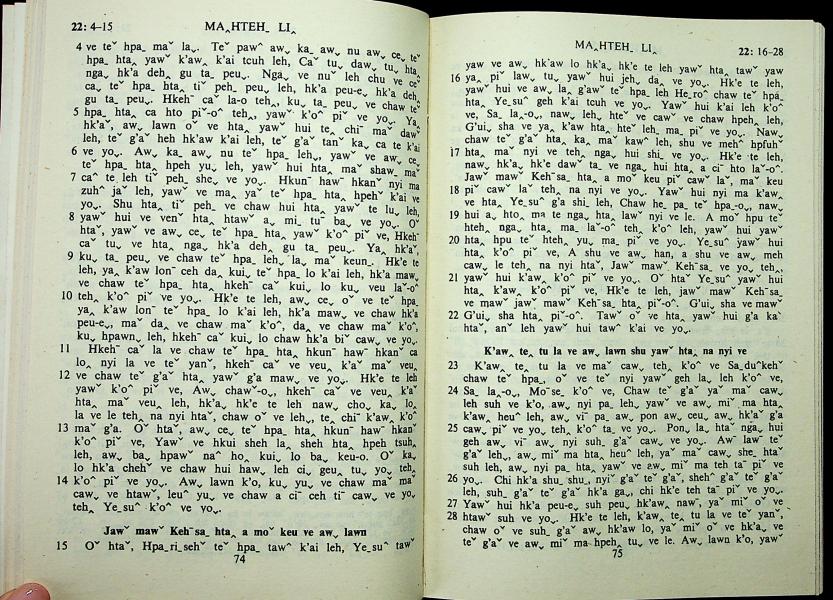 22: 4-15
MA‸HTEH_ LI‸
4 ve teˇ hpa_ maˇ la˯. Teˇ pawˆ aw˯ ka‸ aw˯ nu aw˯ ce‸ teˇ
hpa_ hta‸ yawˇ k'aw‸ k'ai tcuh leh, Caˇ tu˯ daw˯ tu˯ hta‸
nga˯ hk'a dehˬ gu ta_ peu˯. Nga˯ ve nuˇ leh chu ve ceˇ
ca˯ teˇ hpa_ hta‸ tiˇ peh_ peu˯ leh, hk'a peu-e˯ hk'a dehˬ
gu ta_ peu˯. Hkeh⁻ caˇ la-o teh˯, ku˯ ta_ peu˯ ve chaw teˇ
5 hpa_ hta‸ ca hto piˇ-oˆ teh˯, yawˇ k'oˆ piˇ ve yo˯. Ya˯
hk'aˇ, aw˯ lawn oˇ ve hta‸ yawˇ hui te‸ chiˆ maˇ dawˇ
leh, teˇ g'aˇ heh hk'aw k'ai leh, teˇ g'aˇ tanˇ ka˯ ca te k'ai
6 ve yo˯. Aw˯ ka‸ aw˯ nu teˇ hpa_ leh˯, yawˇ ve aw˯ ce‸
teˇ hpa_ hta‸ hpeh yu leh, yawˇ hui hta‸ maˇ shaw_ maˇ
7 caˆ te leh tiˇ peh_ she˯ ve yo˯. Hkun⁻ hawˇ hkanˇ nyi ma
zuhˆ jaˇ leh, yawˇ ve ma‸ yaˇ teˇ hpa_ hta‸ hpehˇ k'ai ve
yo˯. Shu hta‸ tiˇ peh_ ve chaw hui hta‸ yawˇ te lu˯ leh,
8 yawˇ hui ve venˇ hta‸ htawˇ a˯ mi‸ tuˇ ba˯ ve yo˯. Oˇ
htaˇ, yawˇ ve aw˯ ce‸ teˇ hpa_ hta‸ yawˇ k'oˆ piˇ ve, Hkeh⁻
caˇ tu˯ ve hta‸ nga˯ hk'a dehˬ gu ta_ peu˯. Ya˯ hk'aˇ,
9 ku˯ ta_ peu˯ ve chaw teˇ hpa_ leh˯ la˯ maˇ keun_. Hk'e te
leh, ya‸ k'aw lon⁻ ceh da‸ kui‸ teˇ hpa_ lo k'ai leh, hk'a maw˯
ve chaw teˇ hpa_ hta‸ hkeh⁻ caˇ kui‸ lo ku˯ veu laˇ-oˆ
10 teh˯ k'oˆ piˇ ve yo˯. Hk'e te leh, aw˯ ce‸ oˇ ve teˇ hpa_
ya‸ k'aw lonˇ teˇ hpa_ lo k'ai leh, hk'a maw˯ ve chaw hk'a
peu-e˯ maˇ da‸ ve chaw maˇ k'oˆ, da‸ ve chaw maˇ k'oˆ,
ku˯ hpawn˯ leh, hkeh⁻ caˇ kui‸ lo chaw hk'a biˇ caw˯ ve yo˯.
11 Hkeh⁻ caˇ la ve chaw teˇ hpa_ hta‸ hkunˇ hawˇ hkanˆ ca
lo˯ nyi la ve te yanˇ, hkeh⁻ caˇ ve veu‸ k'aˇ maˇ veu˯
12 ve chaw teˇ g'aˇ hta‸ yawˇ g'a maw˯ ve yo˯. Hk'e te leh
yawˇ k'oˆ piˇ ve, Aw˯ chawˇ-o˯, hkeh⁻ caˇ ve veu‸ k'aˇ
hta‸ maˇ veu˯ leh, hk'a˯ hk'e te leh naw˯ cho‸ ka_ lo‸
la ve le teh˯ na nyi htaˇ, chaw oˇ ve leh˯, te‸ chiˆ k'aw‸ k'oˆ
13 maˇ g'a. Oˇ htaˇ, aw˯ ce‸ teˇ hpa_ hta‸ hkun⁻ hawˇ hkanˇ
k'oˆ piˇ ve, Yawˇ ve hkui sheh la‸ sheh hta‸ hpeh tsuh˯
leh, aw˯ ba˯ hpawˇ naˆ ho‸ kui‸ lo ba˯ keu-o. Oˇ ka˯
lo hk'a chehˇ ve chaw hui haw˯ leh ci˯ geu‸ tu˯ yo˯ teh˯
14 k'oˆ piˇ ve yo˯. Aw˯ lawn k'o, ku˯ yu˯ ve chaw maˇ maˇ
caw˯ ve htawˇ, leuˆ yu˯ ve chaw a ciˆ ceh tiˇ caw˯ ve yo˯
teh‸ Ye˯suˆ k'oˇ ve yo˯.
Jawˇ mawˇ Keh⁻sa_ hta‸ a moˇ keu ve aw˯ lawn
15 Oˇ htaˇ, Hpa_ri_sehˇ teˇ hpa_ tawˆ k'ai leh, Ye˯suˆ tawˇ
74
MA‸HTEH_ LI‸
22: 16-28
yaw ve aw˯ hk'aw lo hk'a˯ hk'e te leh yawˇ hta‸ tawˇ yaw
16 ya‸ piˇ law˯ tu˯ yawˇ hui jeh˯ da˯ ve yo˯. Hk'e te leh,
yawˇ hui ve aw˯ la˯ g'awˇ teˇ hpa_ leh He˯roˆ chaw teˇ hpa_
hta‸ Ye˯suˆ geh k'ai tcuh ve yo˯. Yawˇ hui k'ai leh k'oˆ
ve, Sa˯ la‸-o˯, naw˯ leh˯ hteˇ ve cawˇ ve chaw hpeh˯ leh,
G'ui˯ sha ve ya‸ k'aw hta‸ hteˇ leh_ ma˯ piˇ ve yo˯. Naw˯
chaw teˇ g'aˇ hta‸ ka˯ maˇ kawˆ leh, shu ve mehˆ hpfuhˇ
17 hta‸ maˇ nyi ve teh˯ nga˯ hui shi˯ ve yo˯. Hk'e te leh,
naw˯ hk'a˯ hk'e dawˇ ta ve nga˯ hui hta‸ a ciˆ hto laˇ-oˆ.
Jawˇ mawˇ Keh⁻sa_ hta‸ a moˇ keu piˇ caw˯ laˇ, maˇ keu
18 piˇ caw˯ laˇ teh˯ na nyi ve yo˯. Yawˇ hui nyi ma k'aw˯
ve hta‸ Ye˯suˆ g'a shi˯ leh, Chaw he_ pa_ teˇ hpa_-o˯, naw˯
19 hui a˯ hto‸ ma te nga˯ hta‸ lawˇ nyi ve le. A moˇ hpu te
hteh˯ nga˯ hta‸ ma_ laˇ-oˆ teh˯ k'oˆ leh, yawˇ hui yawˇ
20 hta‸ hpu teˇ hteh˯ yu˯ ma_ piˇ ve yo˯. Ye˯suˆ yawˇ hui
hta‸ k'oˆ piˇ ve, A shu ve aw˯ han˯ a shu ve aw˯ meh
caw˯ le teh˯ na nyi htaˇ, Jawˇ mawˇ Keh⁻sa_ ve yo˯ teh˯,
21 yawˇ hui k'aw˯ k'oˆ piˇ ve yo˯. Oˇ htaˇ Ye˯suˆ yawˇ hui
hta‸ k'aw˯ k'oˆ piˇ ve, Hk'e te leh, jawˇ mawˇ Keh⁻sa_
ve mawˇ jawˇ mawˇ Keh⁻sa_ hta‸ piˇ-oˆ. G'ui˯ sha ve mawˇ
22 G'ui˯ sha hta‸ piˇ-oˆ. Tawˇ oˇ ve hta‸ yawˇ hui g'a kaˇ
htaˇ, anˆ leh yawˇ hui tawˆ k'ai ve yo˯.
K'aw‸ te‸ tu la ve aw˯ lawn shu yawˇ hta‸ na nyi ve
23 K'aw‸ te‸ tu la ve maˇ caw˯ teh˯ k'oˆ ve Sa_du˯kehˇ
chaw teˇ hpa_, oˇ ve teˇ nyi yawˇ geh la leh k'oˆ ve,
24 Sa˯ la‸-o˯, Mo⁻se_ k'oˆ ve, Chaw teˇ g'aˇ yaˇ maˇ caw˯
leh suh ve k'o, aw˯ nyi pa_ leh˯ yawˇ ve aw˯ miˇ ma hta‸
k'aw‸ heuˆ leh, aw˯ viˇ pa_ aw˯ pon aw˯ ceu˯ aw˯ hk'aˇ g'a
25 caw˯ piˇ ve yo˯ teh˯ k'oˆ ta ve yo˯. Pon_ la˯ htaˇ nga˯ hui
geh aw˯ viˇ aw˯ nyi suh_ g'aˇ caw˯ ve yo˯. Aw⁻ lawˇ teˇ
g'aˇ leh˯, aw˯ miˇ ma hta‸ heuˆ leh, yaˇ maˇ caw˯ she‸ htaˇ
suh leh, aw˯ nyi pa_ hta‸ yawˇ ve aw˯ miˇ ma teh taˆ piˇ ve
26 yo˯. Chi hk'a shu_ shu_ nyiˇ g'aˇ teˇ g'aˇ, shehˆ g'aˇ teˇ g'aˇ
leh, suh_ g'aˇ teˇ g'aˇ hk'a ga˯, chi hk'e teh taˆ piˇ ve yo˯.
27 Yawˇ hui hk'a peu-e˯ suh peu˯ hk'aw˯ nawˇ, yaˇ miˇ oˇ ve
28 htawˇ suh ve yo˯. Hk'e te leh, k'aw‸ te‸ tu la ve te yanˇ,
chaw oˇ ve suh_ g'aˇ aw˯ hk'aw lo, yaˇ miˇ oˇ ve hk'a˯ ve
teˇ g'aˇ ve aw˯ miˇ ma hpeh˯ tu˯ ve le. Aw˯ lawn k'o, yawˇ
75